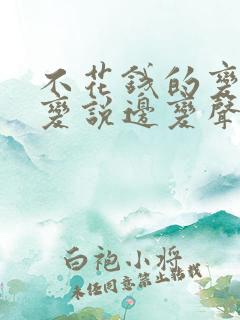 不花錢的變
變說邊變聲
白袍小將
未经同意禁止转载